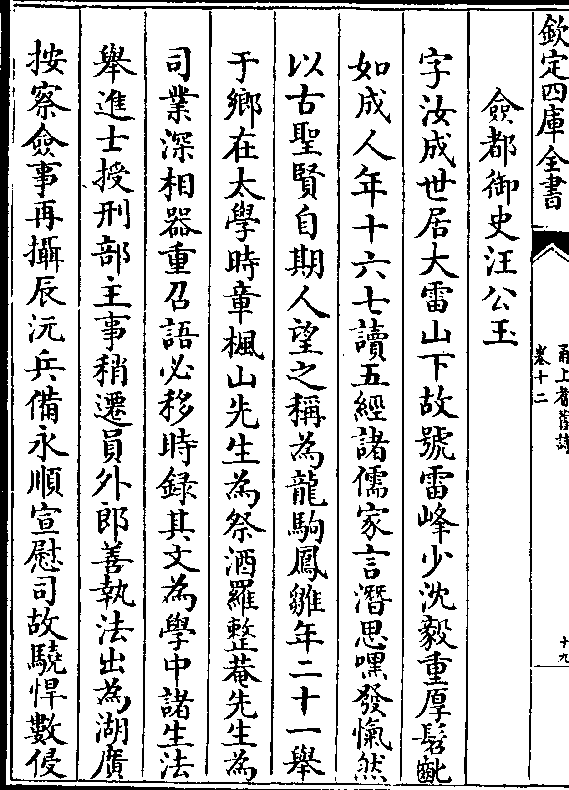 欽定四庫全書
甬上耆舊詩
卷十二
十九
僉都御史汪公玉
字汝成世居大雷山下故號雷峰少沈毅重厚髫齔
如成人年十六七讀五經諸儒家言潛思嘿發愾然
以古聖賢自期人望之稱為龍駒鳳雛年二十一舉
于鄉在太學時章楓山先生為祭酒羅整菴先生為
司業深相器重召語必移時録其文為學中諸生法
舉進士授刑部主事稍遷員外郎善執法出為湖廣
按察僉事再攝辰沅兵備永順宣慰司故驍悍數侵